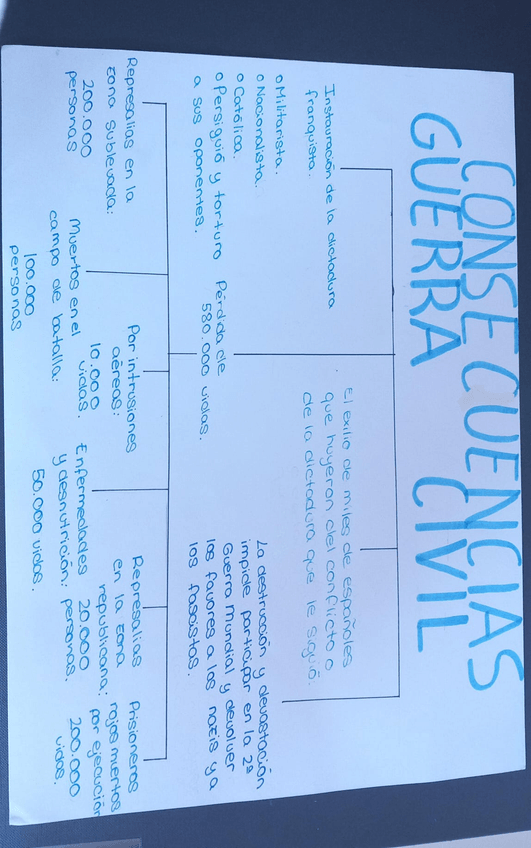 CONSECUENCIAS
GUERRA CIVIL
Instauración de la dictadura
franquista.
o Militarista.
o Nacionalista.
o Católica.
o Persiguió y torturo
a sus oponentes.
Pérdida de
580.000 vidas.
El exilio de miles de españoles
que huyeron del conflicto o
de la dictadura que le siguió.
La destrucción y devastación
impide participar en la 2ª
Guerra Mundial y devolver
los favores a los nazis y a
los fascistas.
Represalias en la
zona sublevada:
200.000
personas
Muertos en el
campo de batalla:
100.000
personas
Por intrusiones
aéreas:
10.000
vidas.
Enfermedades
y desnutrición:
50.000 vidas.
Represalias
en la zona
republicana:
20.000
personas.
Prisioneros
rojos muertos
por ejecución
200.000
vidas.